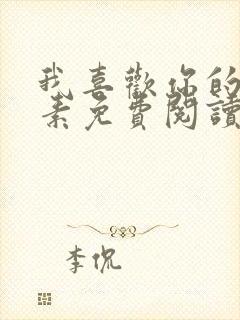 我喜歡你的
素免費閱讀
李侃